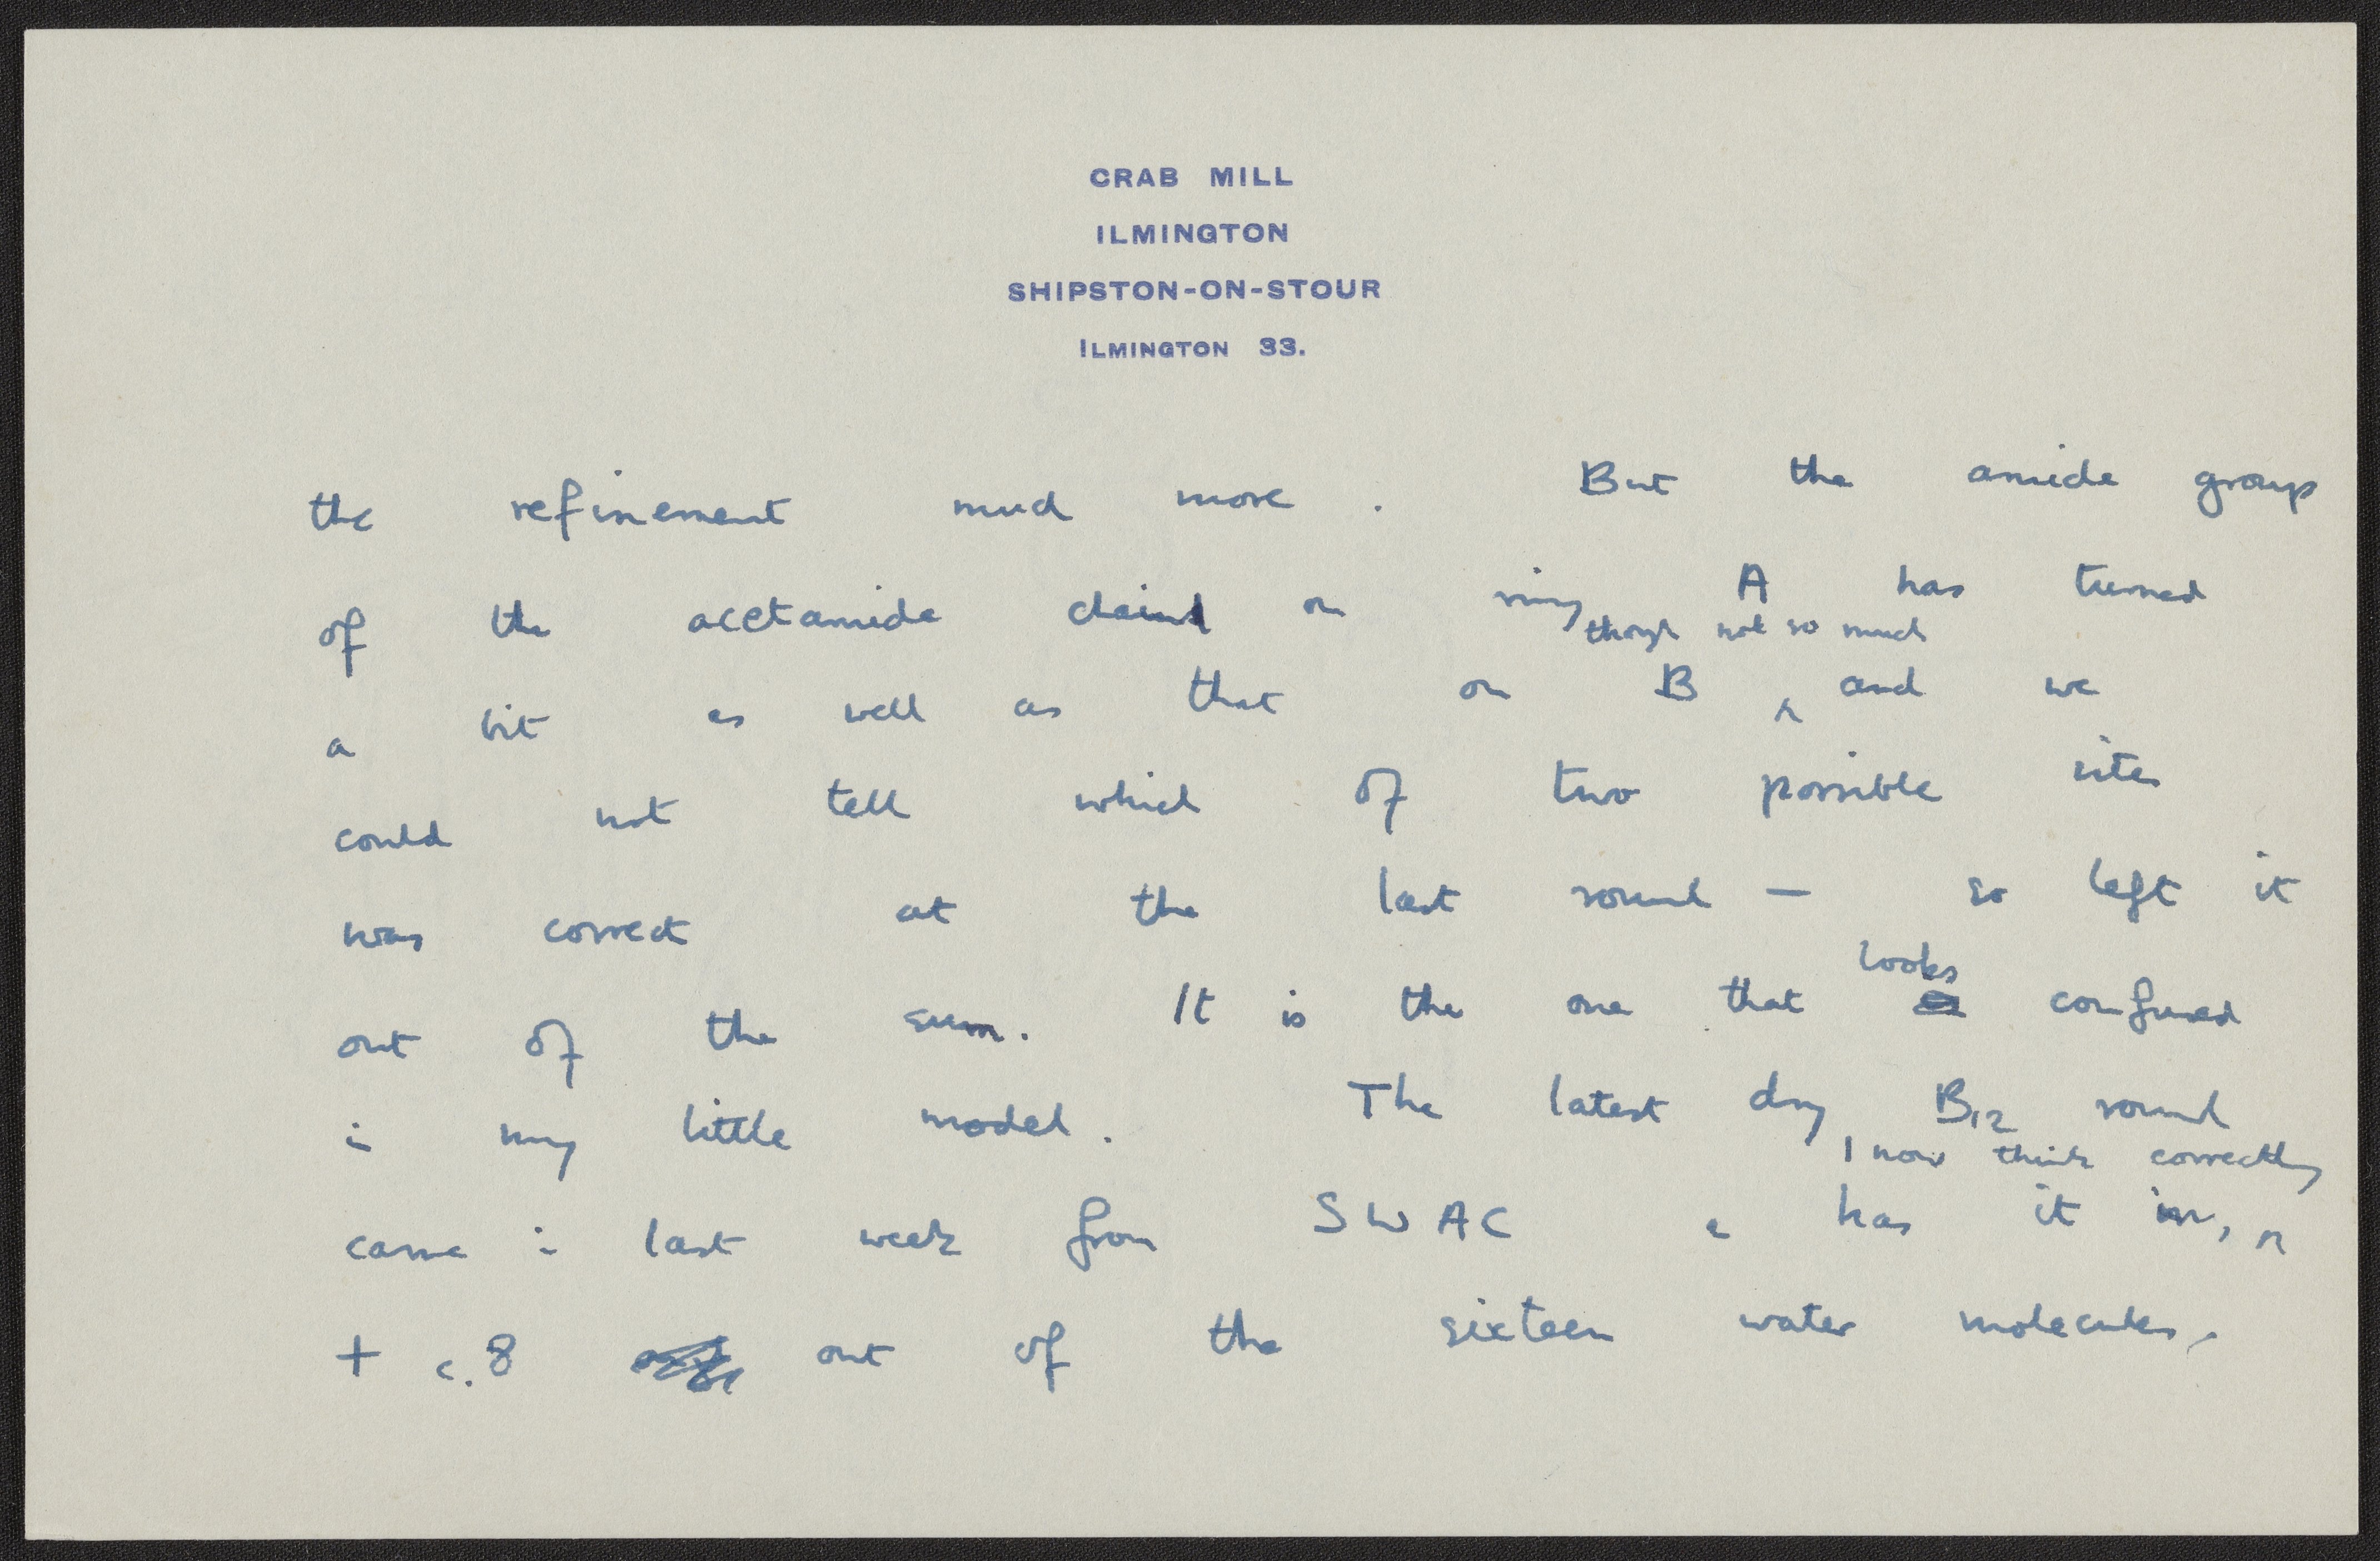 CRAB MILL
ILMINGTON
SHIPSTON-ON-STOUR
ILMINGTON 33.
the refinement much more. But the amide group
of the acetamide chain on ring A has turned
though not so much
a bit as well as that on B ^ and we
could not tell which of two possible sites
was correct at the last round — so left it
looks
out of the sum. It is the one that confused
in my little model. The latest dry B12 round
I now think correctly
came in last week from SWAC & has it in, ^
+ c. 8 out of the sixteen water molecules.